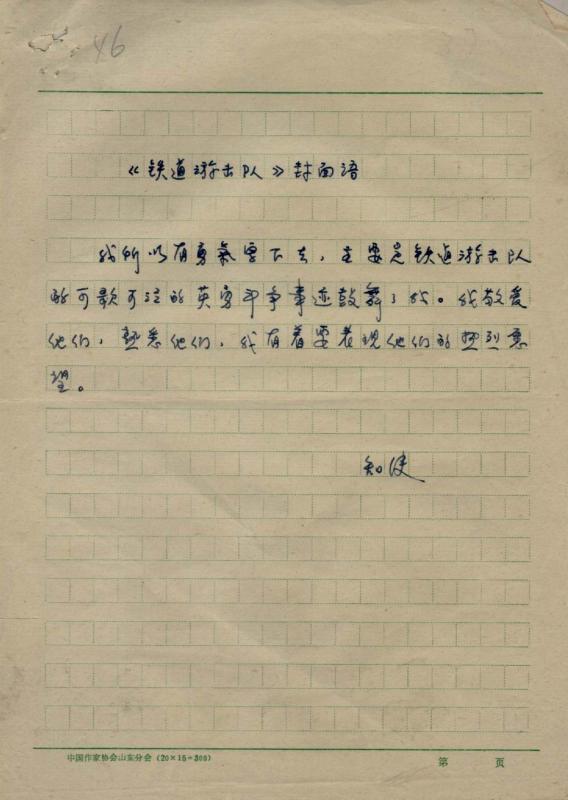 46
《铁道游击队》封面语
我所以有勇氣写下去，主要是铁道游击队
的可歌可泣的英勇斗争事迹鼓舞了我。我敬爱
他们，熟悉他们，我有着要表现他们的热烈愿
望。
知侠
中国作家协会山东分会（20×15=300）
第 页